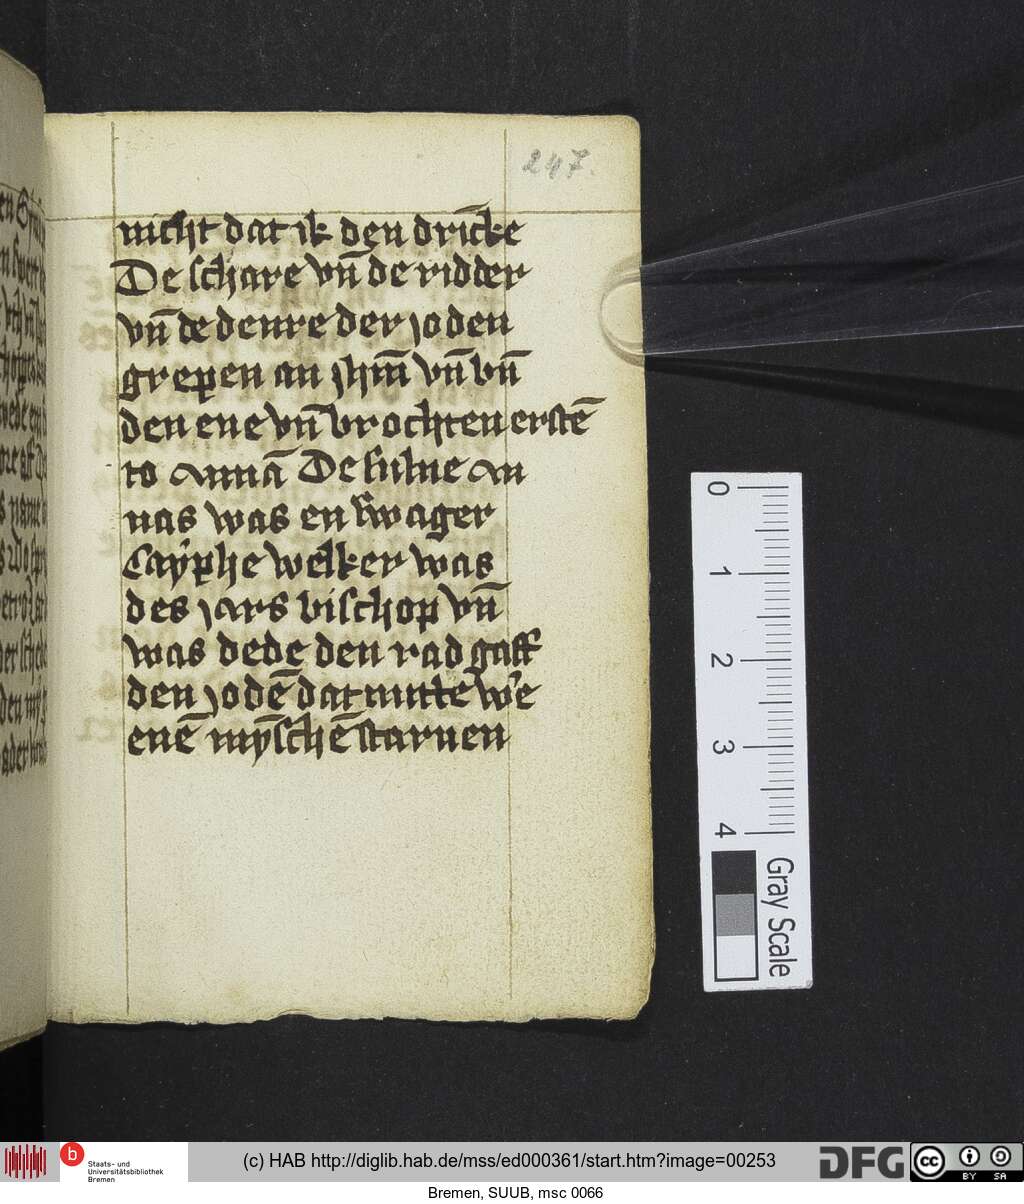 247.
nicht dat ik den dricke
De schare vn̄ de ridder
vn̄ de denre der joden
grepen an jhm̄ vn̄ bn̄
den ene vn̄ brochten erstē
to annā De sulue an
nas was en swager
Cayphe welker was
des jars bischop vn̄
was dede den rad gaff
den jodē dat nutte were
enē mȳschē staruen
0
1
2
3
4
Gray Scale
b Staats- und
Universitätsbibliothek
Bremen
(c) HAB http://diglib.hab.de/mss/ed000361/start.htm?image=00253
DFG
cc BY SA
Bremen, SUUB, msc 0066